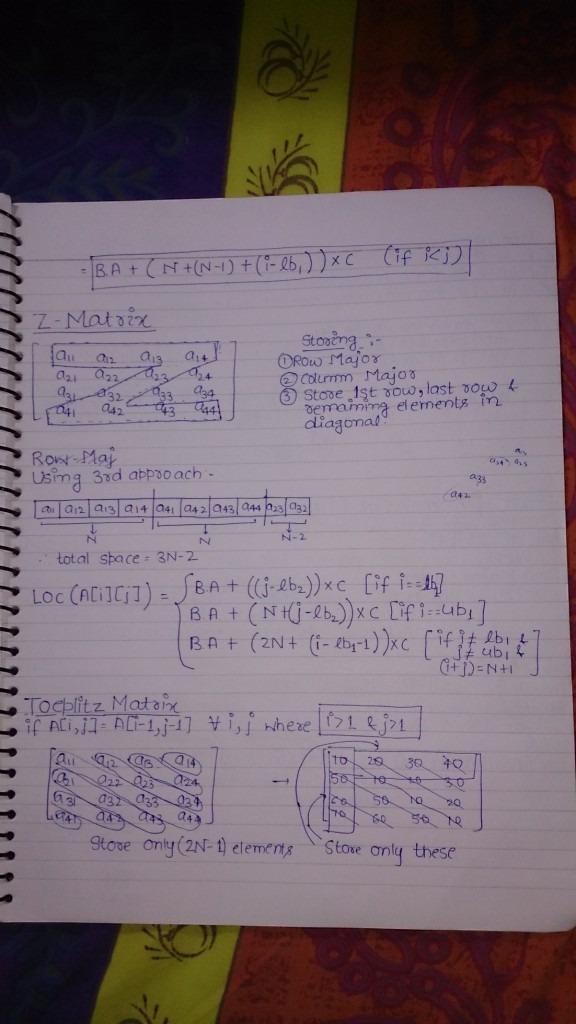 = B.A + ( N + (N-1) + (i-lb₁) ) x C (if i<j)
Z-Matrix
a11 a12 a13 a14
a21 a22 a23 a24
a31 a32 a33 a34
a41 a42 a43 a44
Storing :-
① Row Major
② Column Major
③ Store 1st row, last row &
remaining elements in
diagonal.
Row-Maj
Using 3rd approach -
a33
a42
a11 a12 a13 a14 a41 a42 a43 a44 a23 a32
N N N-2
∴ total space = 3N-2
LOC (A[i][j]) = { B.A + ((j-lb₂)) x C [if i==lb₁]
B.A + (N+(j-lb₂)) x C [if i==ub₁]
B.A + (2N + (i-lb₁-1)) x C [if j≠lb₁ &
j≠ub₁ &
(i+j)=N+1]
Toeplitz Matrix
if A[i,j] = A[i-1,j-1] ∀ i,j where i>1 & j>1
a11 a12 a13 a14 → 10 20 30 40
a21 a22 a23 a24 50 10 20 30
a31 a32 a33 a34 60 50 10 20
a41 a42 a43 a44 70 60 50 10
Store only (2N-1) elements Store only these